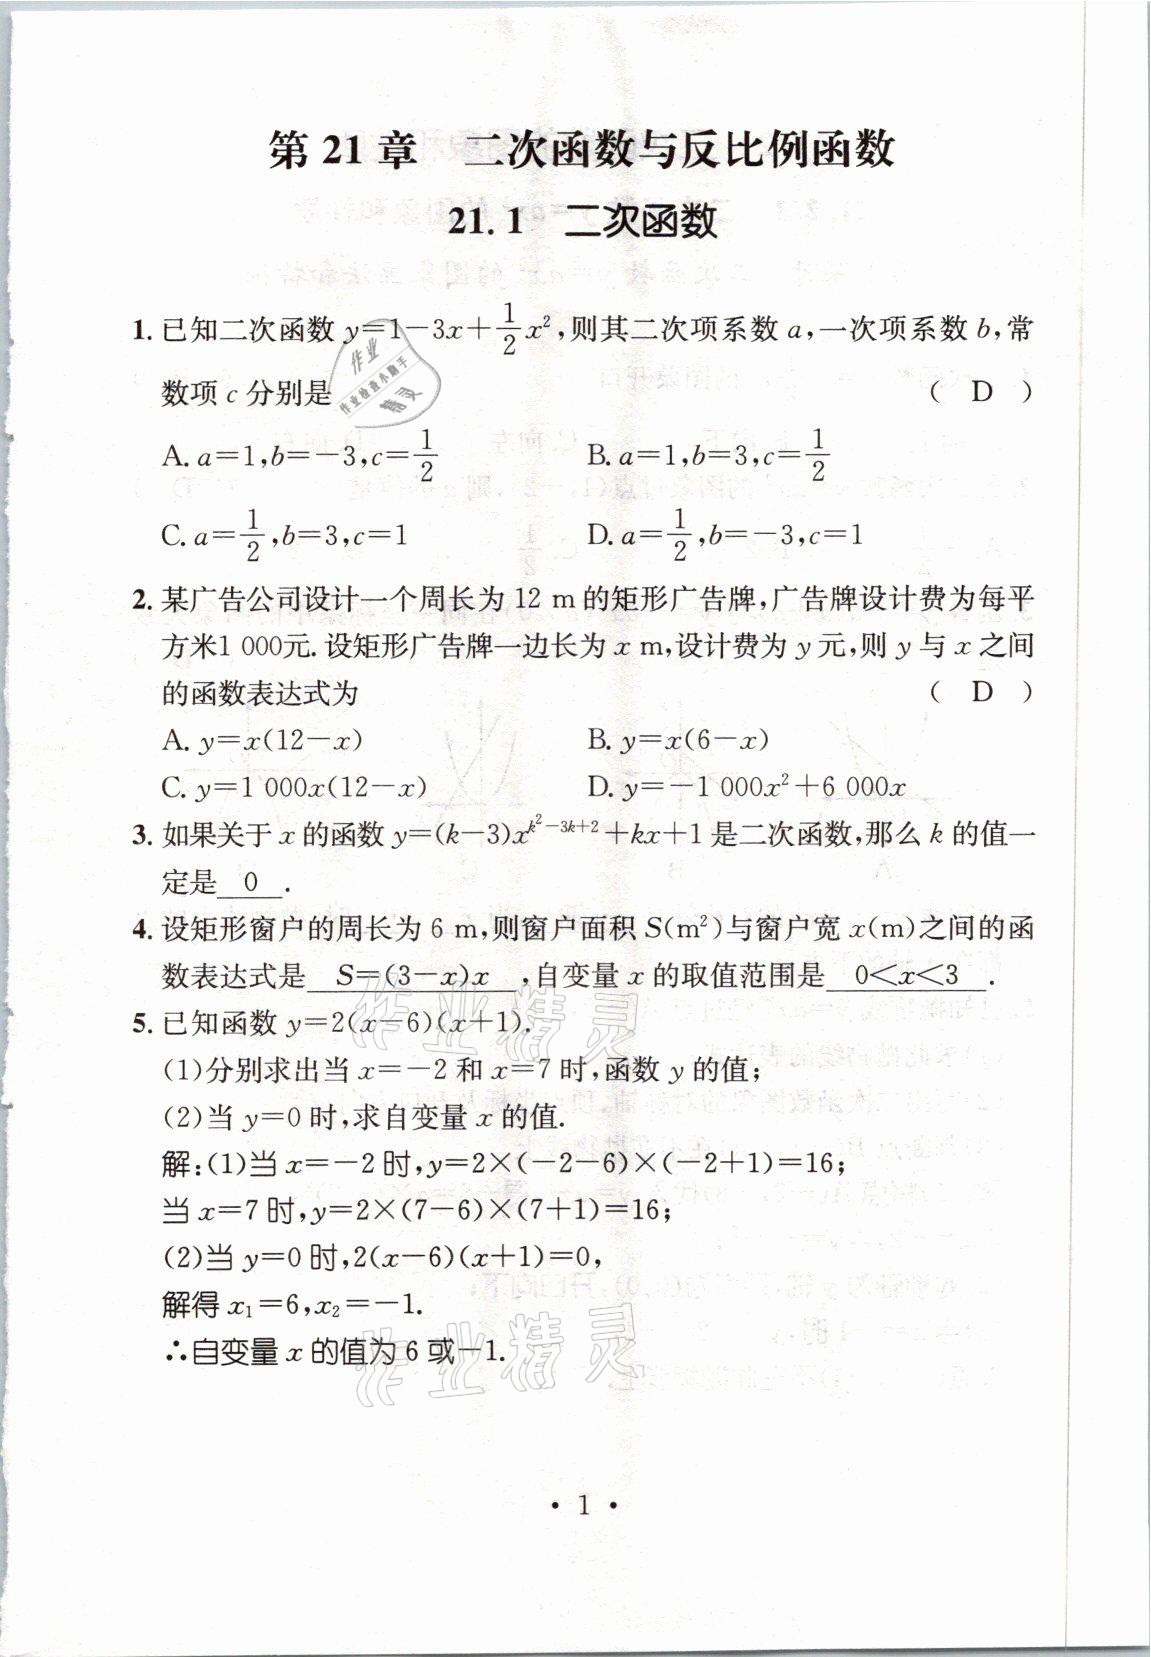 第 21 章 二次函数与反比例函数
21.1 二次函数
1. 已知二次函数 y=1-3x+1/2x²,则其二次项系数 a,一次项系数 b,常
数项 c 分别是 ( D )
A. a=1,b=-3,c=1/2 B. a=1,b=3,c=1/2
C. a=1/2,b=3,c=1 D. a=1/2,b=-3,c=1
2. 某广告公司设计一个周长为 12 m 的矩形广告牌,广告牌设计费为每平
方米1 000元. 设矩形广告牌一边长为 x m,设计费为 y 元,则 y 与 x 之间
的函数表达式为 ( D )
A. y=x(12-x) B. y=x(6-x)
C. y=1 000x(12-x) D. y=-1 000x²+6 000x
3. 如果关于 x 的函数 y=(k-3)x^(k²-3k+2)+kx+1 是二次函数,那么 k 的值一
定是 0 .
4. 设矩形窗户的周长为 6 m,则窗户面积 S(m²)与窗户宽 x(m)之间的函
数表达式是 S=(3-x)x ,自变量 x 的取值范围是 0<x<3 .
5. 已知函数 y=2(x-6)(x+1).
(1)分别求出当 x=-2 和 x=7 时,函数 y 的值;
(2)当 y=0 时,求自变量 x 的值.
解:(1)当 x=-2 时,y=2×(-2-6)×(-2+1)=16;
当 x=7 时,y=2×(7-6)×(7+1)=16;
(2)当 y=0 时,2(x-6)(x+1)=0,
解得 x₁=6,x₂=-1.
∴自变量 x 的值为 6 或-1.
• 1 •
作业
作业检查小助手
精灵
作业精灵
作业精灵